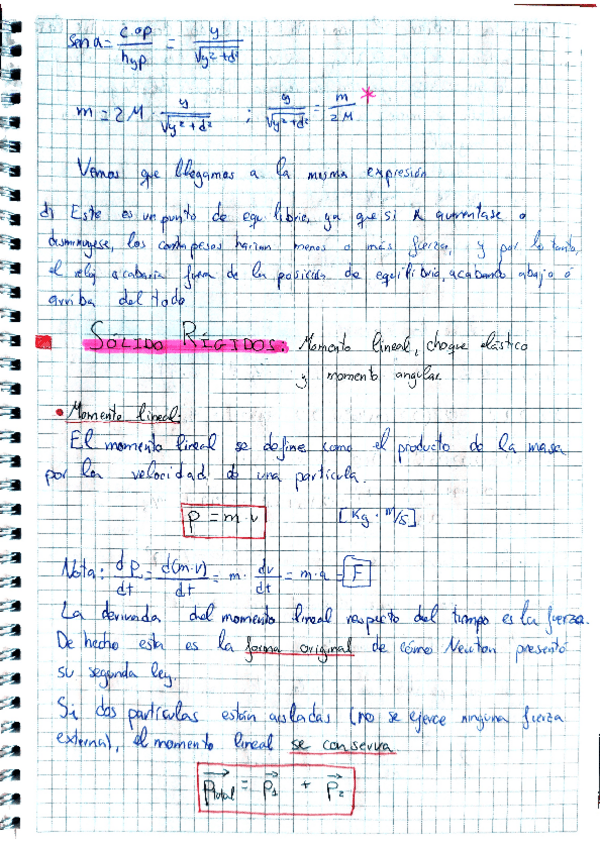 sen α = c.op / hyp = y / √y²+d²
m = 2M · y / √y²+d² ; y / √y²+d² = m / 2M *
Vemos que llegamos a la misma expresión
d) Este es un punto de equilibrio, ya que si aumentase o
disminuyese, los contrapesos harían menos o más fuerza, y por lo tanto,
el reloj acabaría fuera de la posición de equilibrio, acabando abajo o
arriba del todo
SÓLIDO RÍGIDOS: Momento lineal, choque elástico
y momento angular.
• Momento lineal:
El momento lineal se define como el producto de la masa
por la velocidad de una partícula.
p = m · v [Kg · m/s]
Nota: dp/dt = d(m·v)/dt = m · dv/dt = m·a = F
La derivada del momento lineal respecto del tiempo es la fuerza.
De hecho esta es la forma original de cómo Newton presentó
su segunda ley.
Si dos partículas están aisladas (no se ejerce ninguna fuerza
externa), el momento lineal se conserva
p⃗total = p⃗1 + p⃗2